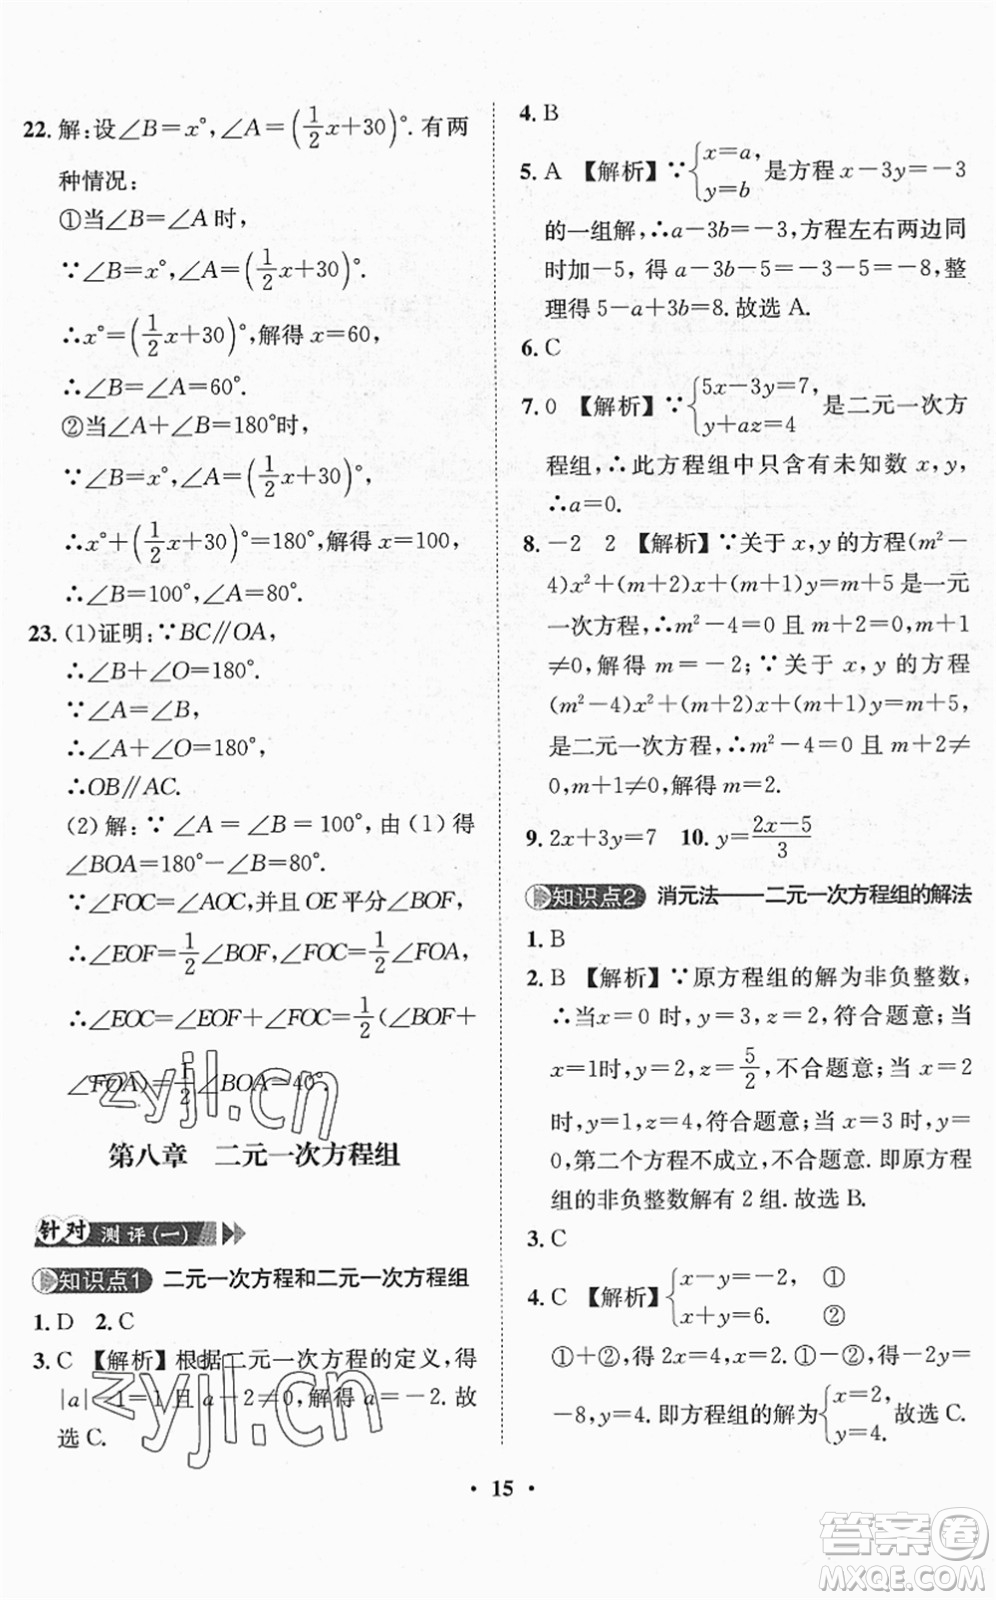 22. 解:设∠B=x°,∠A=(1/2x+30)°.有两
种情况:
①当∠B=∠A时,
∵∠B=x°,∠A=(1/2x+30)°.
∴x°=(1/2x+30)°,解得x=60,
∴∠B=∠A=60°.
②当∠A+∠B=180°时,
∵∠B=x°,∠A=(1/2x+30)°.
∴x°+(1/2x+30)°=180°,解得x=100,
∴∠B=100°,∠A=80°.
23. (1)证明:∵BC∥OA,
∴∠B+∠O=180°.
∵∠A=∠B,
∴∠A+∠O=180°,
∴OB∥AC.
(2)解:∵∠A=∠B=100°,由(1)得
∠BOA=180°-∠B=80°.
∵∠FOC=∠AOC,并且OE平分∠BOF,
∴∠EOF=1/2∠BOF,∠FOC=1/2∠FOA,
∴∠EOC=∠EOF+∠FOC=1/2(∠BOF+
∠FOA)=1/2∠BOA=40°.
第八章 二元一次方程组
针对测评(一)
知识点1 二元一次方程和二元一次方程组
1. D 2. C
3. C 【解析】根据二元一次方程的定义,得
|a|-1=1且a-2≠0,解得a=-2.故
选C.
4. B
5. A 【解析】∵{x=a, y=b 是方程x-3y=-3
的一组解,∴a-3b=-3,方程左右两边同
时加-5,得a-3b-5=-3-5=-8,整
理得5-a+3b=8.故选A.
6. C
7. 0 【解析】∵{5x-3y=7, y+az=4 是二元一次方
程组,∴此方程组中只含有未知数x,y,
∴a=0.
8. -2 2 【解析】∵关于x,y的方程(m²-
4)x²+(m+2)x+(m+1)y=m+5是一元
一次方程,∴m²-4=0且m+2=0,m+1
≠0,解得m=-2;∵关于x,y的方程
(m²-4)x²+(m+2)x+(m+1)y=m+5,
是二元一次方程,∴m²-4=0且m+2≠
0,m+1≠0,解得m=2.
9. 2x+3y=7 10. y=(2x-5)/3
知识点2 消元法——二元一次方程组的解法
1. B
2. B 【解析】∵原方程组的解为非负整数,
∴当x=0时,y=3,z=2,符合题意;当
x=1时,y=2,z=5/2,不合题意;当x=2
时,y=1,z=4,符合题意;当x=3时,y=
0,第二个方程不成立,不合题意.即原方程
组的非负整数解有2组.故选B.
3. C
4. C 【解析】{x-y=-2, ① x+y=6. ②
①+②,得2x=4,x=2,①-②,得-2y=
-8,y=4.即方程组的解为{x=2, y=4. 故选C.
zyjl.cn
zyjl.cn
·15·
答案卷
MXQE.COM